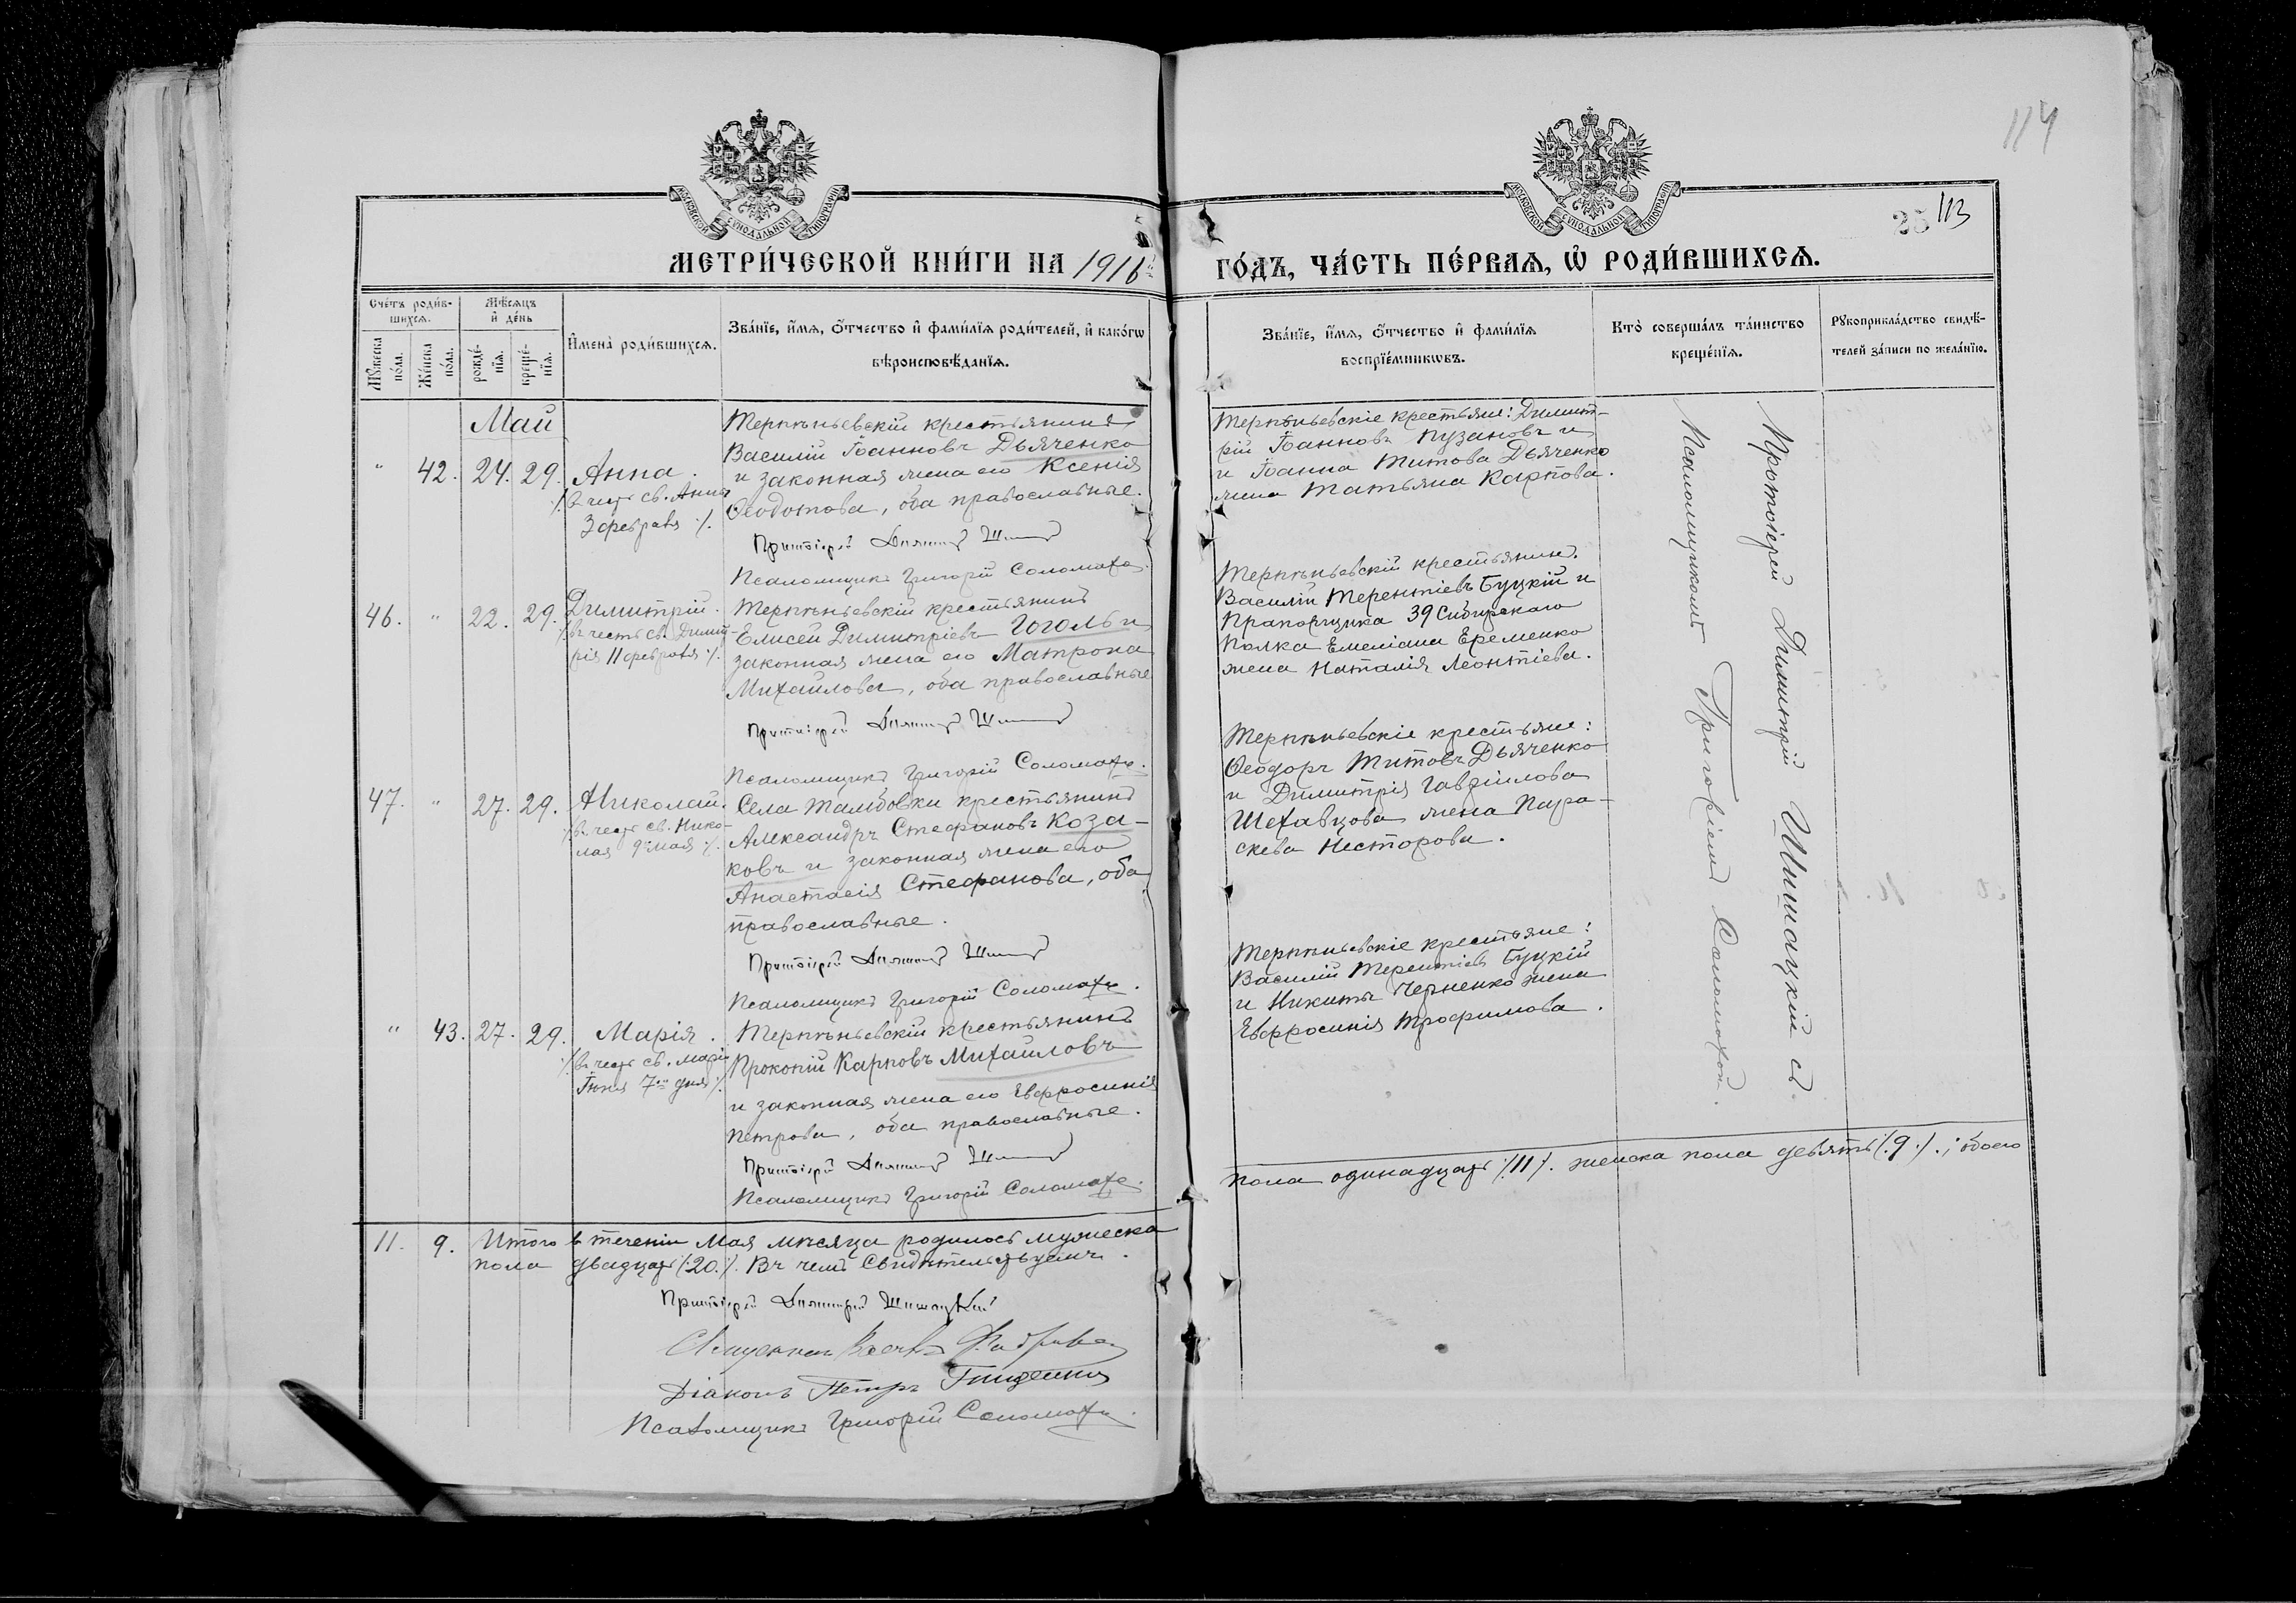 114
25 113
МОСКОВСКОЙ СѴНОДАЛЬНОЙ ТИПОГРАФІИ
МОСКОВСКОЙ СѴНОДАЛЬНОЙ ТИПОГРАФІИ
МЕТРИ́ЧЕСКОЙ КНИ́ГИ НА 1916
ГО́ДЪ, ЧА́СТЬ ПЕ́РВАЯ, Ѽ РОДИ́ВШИХСЯ.
Сче́тъ роди́в-
шихся.
Мꙋ́жеска по́ла.
Же́нска по́ла.
Мѣ́сяцъ
и҆ де́нь
рожде́-
нїя.
креще́-
нїя.
И҆мена̀ роди́вшихся.
Зва́нїе, и҆́мя, ѻ҆́тчество и҆ фами́лїя роди́телей, и҆ како́гѡ
вѣроисповѣ́данїя.
Зва́нїе, и҆́мя, ѻ҆́тчество и҆ фами́лїя
воспрїе́мникѡвъ.
Кто̀ соверша́лъ та́инство
креще́нїя.
Рꙋкоприкла́дство свидѣ́-
телей за́писи по жела́нїю.
Май
" 42. 24. 29. Анна.
/:въ честь св. Анны
3 февраля:/.
Терпѣньевскій крестьянинъ
Василій Іоанновъ Дьяченко
и законная жена его Ксенія
Ѳеодотова, оба православные.
Протоіерей Димитрій
Псаломщикъ Григорій Соломаха.
Терпѣньевскіе крестьяне: Димит-
рій Іоанновъ Пузановъ и
и Іоанна Титова Дьяченко
жена Татьяна Карпова.
46. " 22. 29. Димитрій.
/:въ честь св. Димит-
рія 11 февраля:/.
Терпѣньевскій крестьянинъ
Елисей Димитріевъ Гоголь и
законная жена его Матрона
Михайлова, оба православные
Протоіерей Димитрій
Псаломщикъ Григорій Соломаха.
Терпѣньевскій крестьянин.
Василій Терентіевъ Буцкій и
Прапорщика 39 Сибирскаго
полка Емеліана Еременко
жена Наталія Леонтіева.
47. " 27. 29. Николай.
/:въ честь св. Нико-
лая 9го мая:/.
Села Тамбовки крестьянинъ
Александръ Стефановъ Коза-
ковъ и законная жена его
Анастасія Стефанова, оба
православные.
Протоіерей Димитрій
Псаломщикъ Григорій Соломаха.
Терпѣньевскіе крестьяне:
Ѳеодоръ Титовъ Дьяченко
и Димитрія Гавріилова
Шехавцова жена Пара-
скева Несторова.
" 43. 27. 29. Марія.
/:въ честь св. Маріи
Іюня 7го дня:/.
Терпѣньевскій крестьянинъ
Прокопій Карповъ Михайловъ
и законная жена его Евфросинія
Петрова, оба православные.
Протоіерей Димитрій
Псаломщикъ Григорій Соломаха.
Терпѣньевскіе крестьяне:
Василій Терентіевъ Буцкій
и Никиты Черненко жена
Евфросинія Трофимова.
Протоіерей Димитрій Шишацкій съ
Псаломщикомъ Григоріемъ Соломахой.
11. 9. Итого в теченіи Мая мѣсяца родилось мужеска
пола одинадцать /:11:/. женска пола девять /:9:/.; обоего
пола двадцать /:20:/. Въ чемъ Свидѣтельствуемъ.
Протоіерей Димитрій Шишацкій
Священникъ
Діаконъ Петръ
Псаломщикъ Григорій Соломаха.